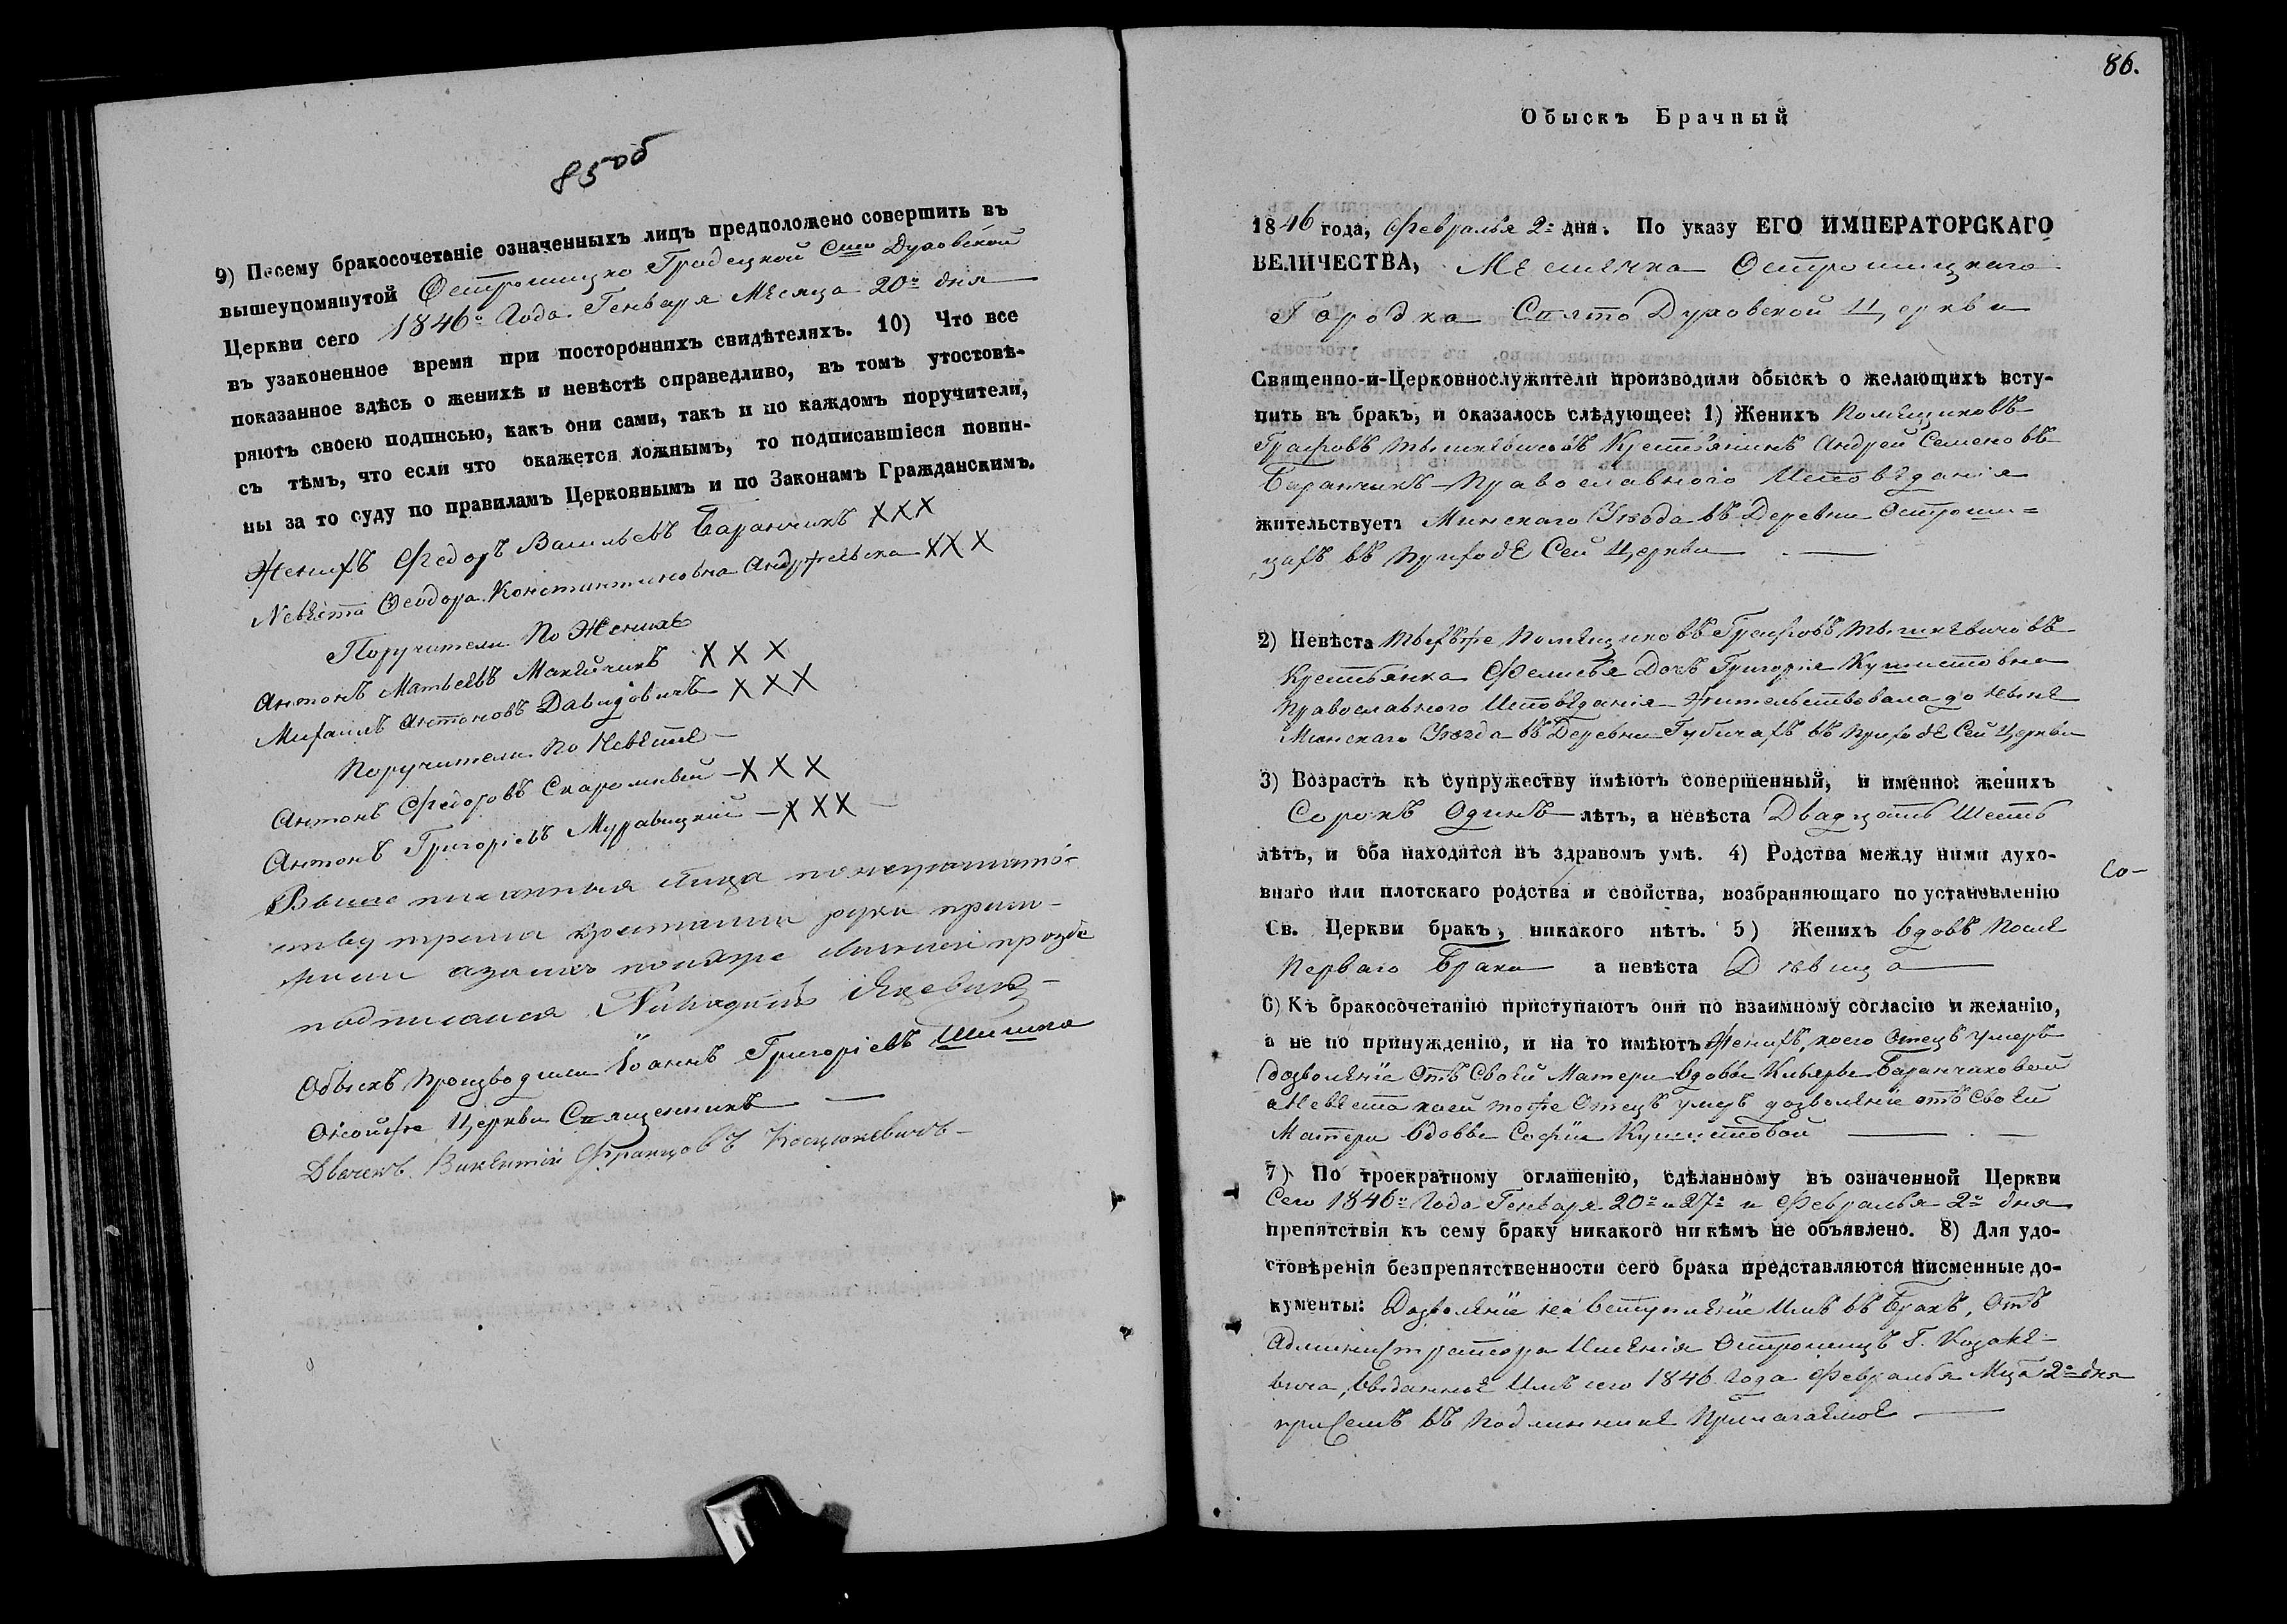 85об
9) Посему бракосочетаніе означенныхъ лицъ предположено совершить въ
вышеупомянутой Острошицко Градецкой Свто Духовской
Церкви сего 1846го Года Генваря Месяца 20го дня
въ узаконенное время при постороннихъ свидѣтеляхъ. 10) Что все
показанное здѣсь о женихѣ и невѣстѣ справедливо, въ томъ утостовѣ-
ряютъ своею подписью, какъ они сами, такъ и по каждомъ поручители,
съ тѣмъ, что если что окажется ложнымъ, то подписавшіеся повин-
ны за то суду по правиламъ Церковнымъ и по Законамъ Гражданскимъ.
Женихъ Федоръ Васильевъ Баранчикъ ХХХ
Невѣста Феодора Константиновна ХХХ
Поручители По Женихѣ
Антонъ Матвеевъ Макейчикъ Х Х Х
Михаилъ Антоновъ Давидовичъ Х Х Х
Поручители По Невестѣ
Антонъ Федоровъ Скаромнвей Х Х Х
Антонъ Григоріевъ Муравицкій Х Х Х
Выше писанныя лица по неграмотс-
тву трема крестами руки прило-
жили а за ихъ по ихже личной прозбе
подписался
Обыскъ Производили Іоаннъ Григоріевъ Шишко
Онойже Церкви Священникъ
Дьячекъ Викентій Францовъ Косцюкевичъ
86.
Обыскъ Брачный
1846 года, Февраля 2го дня. По указу ЕГО ИМПЕРАТОРСКАГО
ВЕЛИЧЕСТВА, Местечка Острошицкаго
Городка Свято Духовской Церкви
Священно-и-Церковнослужители производили обыскъ о желающихъ всту-
пить въ бракъ, и оказалось слѣдующее: 1) Женихъ Помещиковъ
Графовъ Тышкевичовъ Крестьянинъ Андрей Семеновъ
Баранчикъ Православного Исповѣданія
жительствуетъ Минскаго Уезда въ Деревни Остроши=
цахъ въ Приходѣ Сей Церкви
2) Невѣста Тыхъже Помещиковъ Графовъ Тышкевичовъ
Крестьянка Фелисья Дочь Григорія Кушнетовна
Православного Исповѣданія Жительствовала до ныне
Минскаго Уезда въ Деревни Губичахъ въ Приходѣ Сей Церкви
3) Возрастъ къ супружеству имѣютъ совершенный, и именно: женихъ
Сорокъ Одинъ лѣтъ, а невѣста Двадцать Шесть
лѣтъ, и оба находятся въ здравомъ умѣ. 4) Родства между ними духо-
внаго или плотскаго родства и свойства, возбраняющаго по установленію
Со-
Св. Церкви бракъ, никакого нѣтъ. 5) Женихъ вдовъ После
Перваго Брака а невѣста Девица
6) Къ бракосочетанію приступаютъ они по взаимному согласію и желанію,
а не по принуждению, и на то имѣютъ Женихъ, коего Отецъ умеръ
дозволеніе Отъ Своей Матери Вдовы Баранчиковой
а Невѣста коей тоже Отецъ умеръ дозволеніе отъ Своей
Матери Вдовы Софіи Кушнетовой
7) По троекратному оглашенію, сдѣланному въ означенной Церкви
Сего 1846го Года Генваря 20го и 27го и Февраля 2го дня
препятствія къ сему браку никакого ни кѣмъ не объявлено. 8) Для удо-
стовѣренія безпрепятственности сего брака представляются писменные до-
кументы: Дозволеніе на Вступленіе Имъ въ Бракъ, Отъ
Администратора Именія Острошицъ Г. Козаке-
вича, Выданное Имъ сего 1846 Года Февраля Мца 2го дня
при Семъ въ Подлиннике Прилагаемое